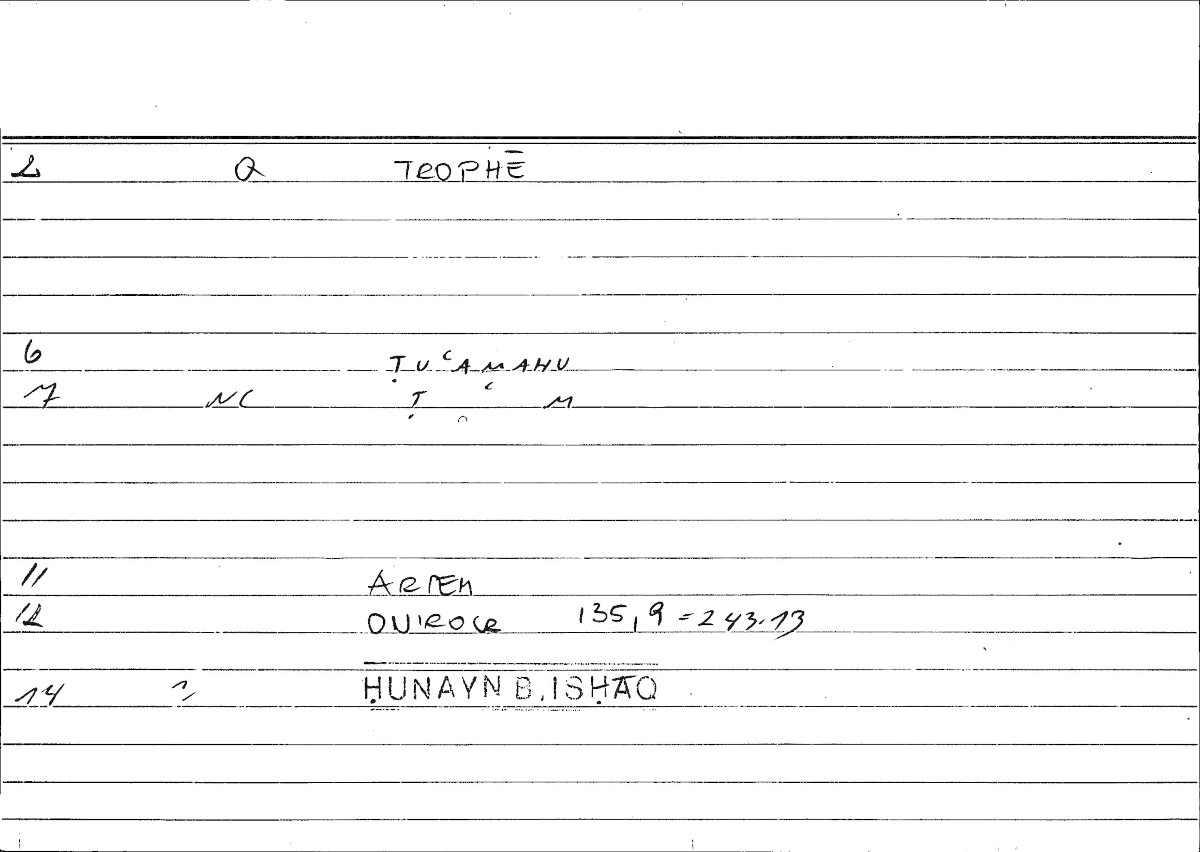 2 Q TROPHĒ
6 ṬUʿAMAHU
7 NC Ṭ ʿ M
11 ARTEM
12 OVIROCR 135,9 = 243.13
14 ḤUNAYN B. ISḤĀQ